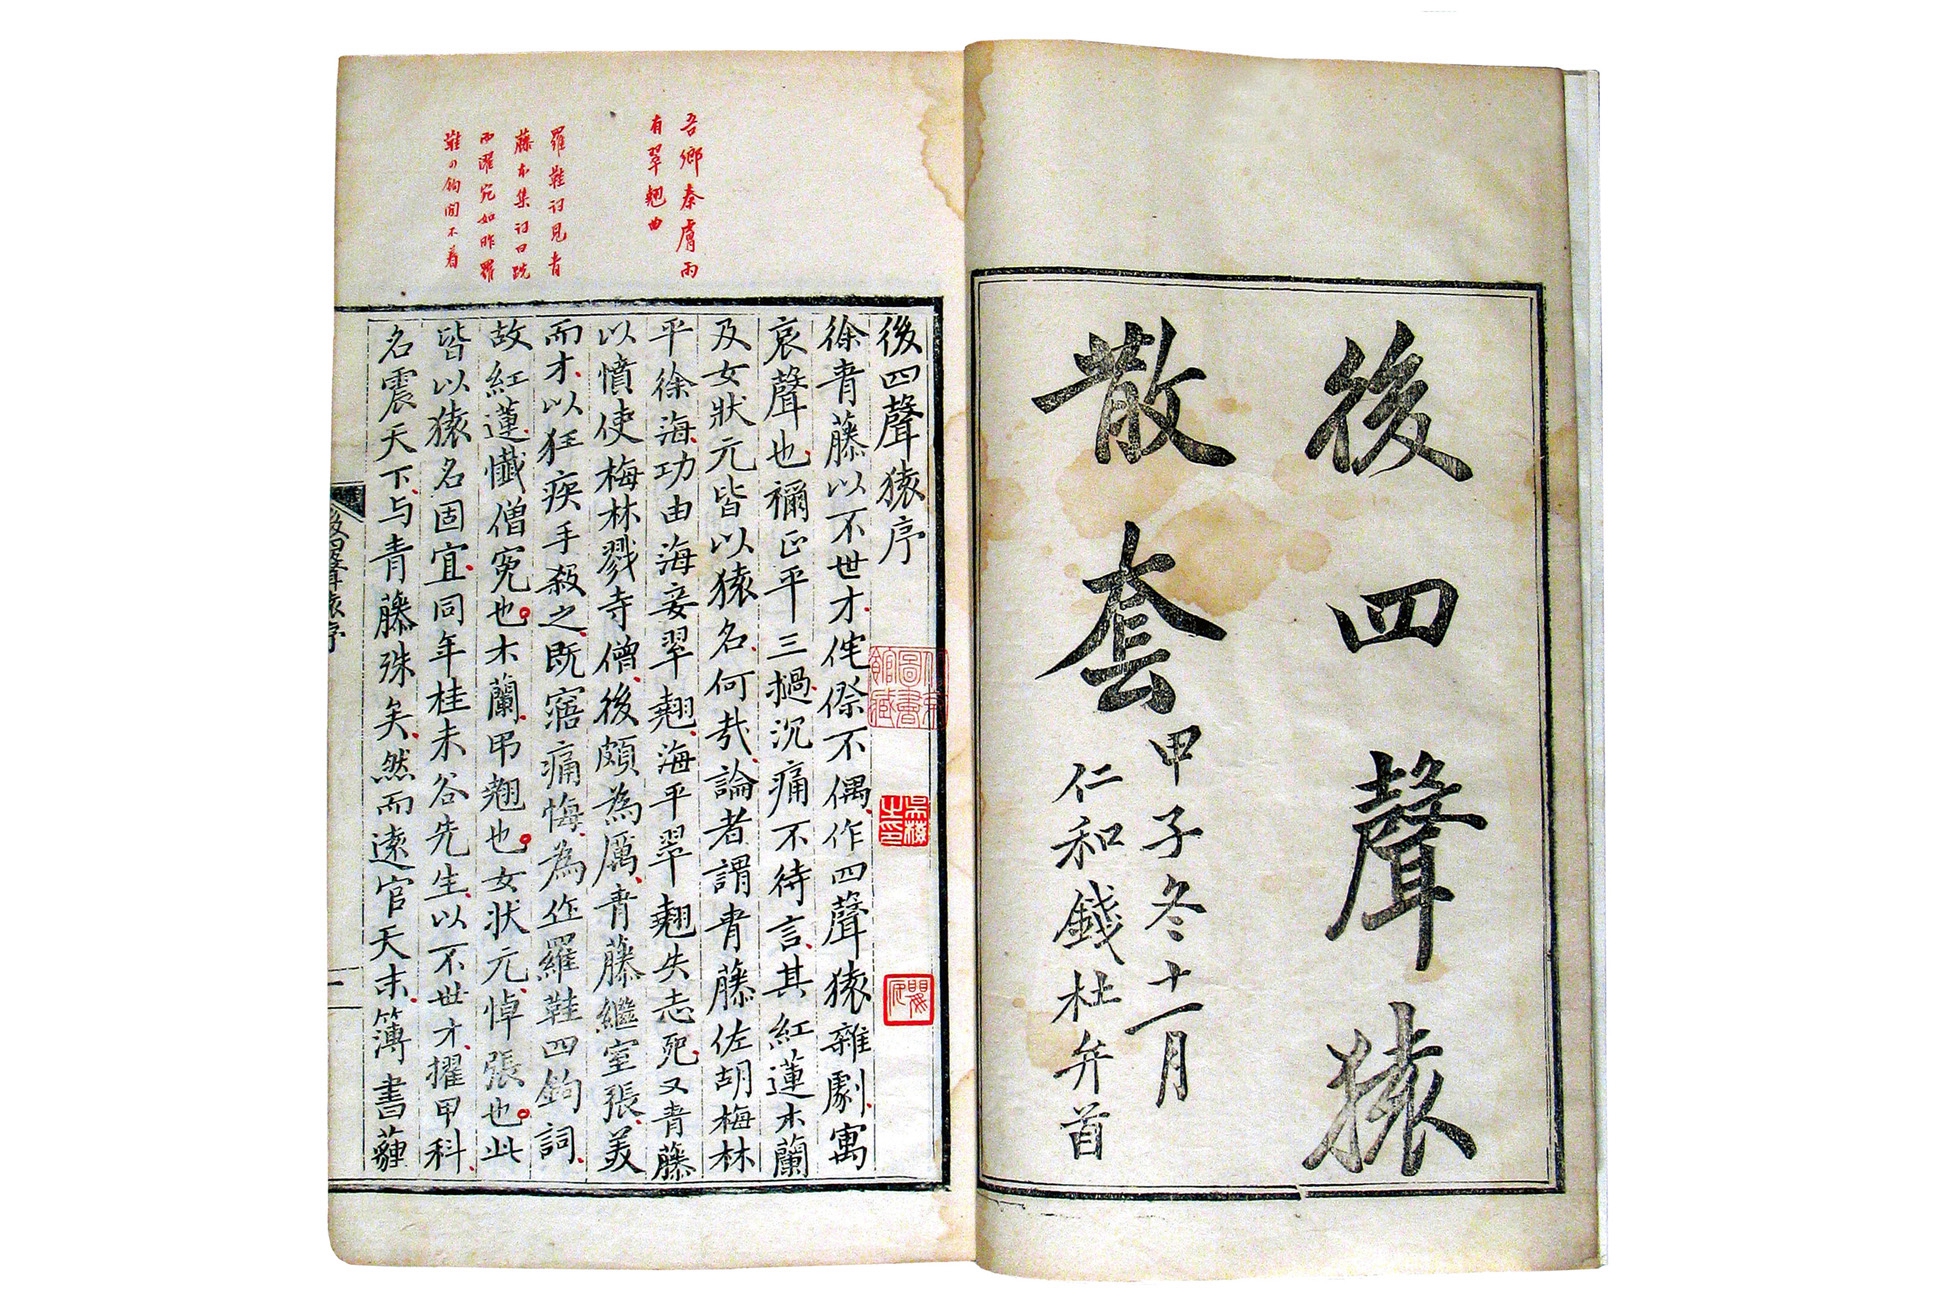 後四聲猿
散套
甲子冬十一月
仁和錢杜弁首
吾鄉秦膚雨
有翠翹曲
羅鞋詞見青
藤本集詞曰踐
雨濯宛如昨羅
鞋四鉤閒不着
後四聲猿序
徐青藤以不世才侘傺不偶作四聲猿雜劇寓
哀聲也禰正平三撾沉痛不待言其紅蓮木蘭
及女狀元皆以猿名何哉論者謂青藤佐胡梅林
平徐海功由海妾翠翹海平翠翹失志死又青藤
以憤使梅林戮寺僧後頗為厲青藤繼室張美
而才以狂疾手殺之既寤痛悔為作羅鞋四鉤詞
故紅蓮懺僧冤也木蘭弔翹也女狀元悼張也此
皆以猿名固宜同年桂未谷先生以不世才擢甲科
名震天下与青藤殊矣然而遠官天末簿書薶
後四聲猿序
一
圖書
館藏
吳梅
之印